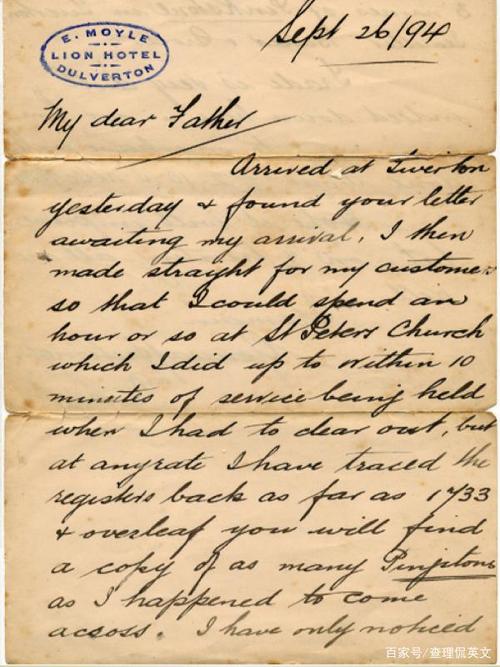 E. MOYLE
LION HOTEL
DULVERTON
Sept 26/94
My dear Father
Arrived at Tiverton
yesterday & found your letter
awaiting my arrival, I then
made straight for my customers
so that I could spend an
hour or so at St Peters Church
which I did up to within 10
minutes of service being held
when I had to clear out, but
at anyrate I have traced the
registers back as far as 1733
& overleaf you will find
a copy of as many Pinjtons
as I happened to come
across. I have only noticed
百家号/查理侃英文